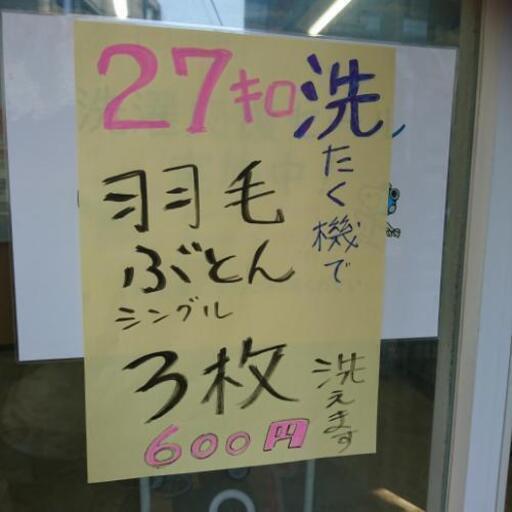 27キロ洗
たく機で
羽毛
ぶとん
シングル
3枚
洗えます
600円